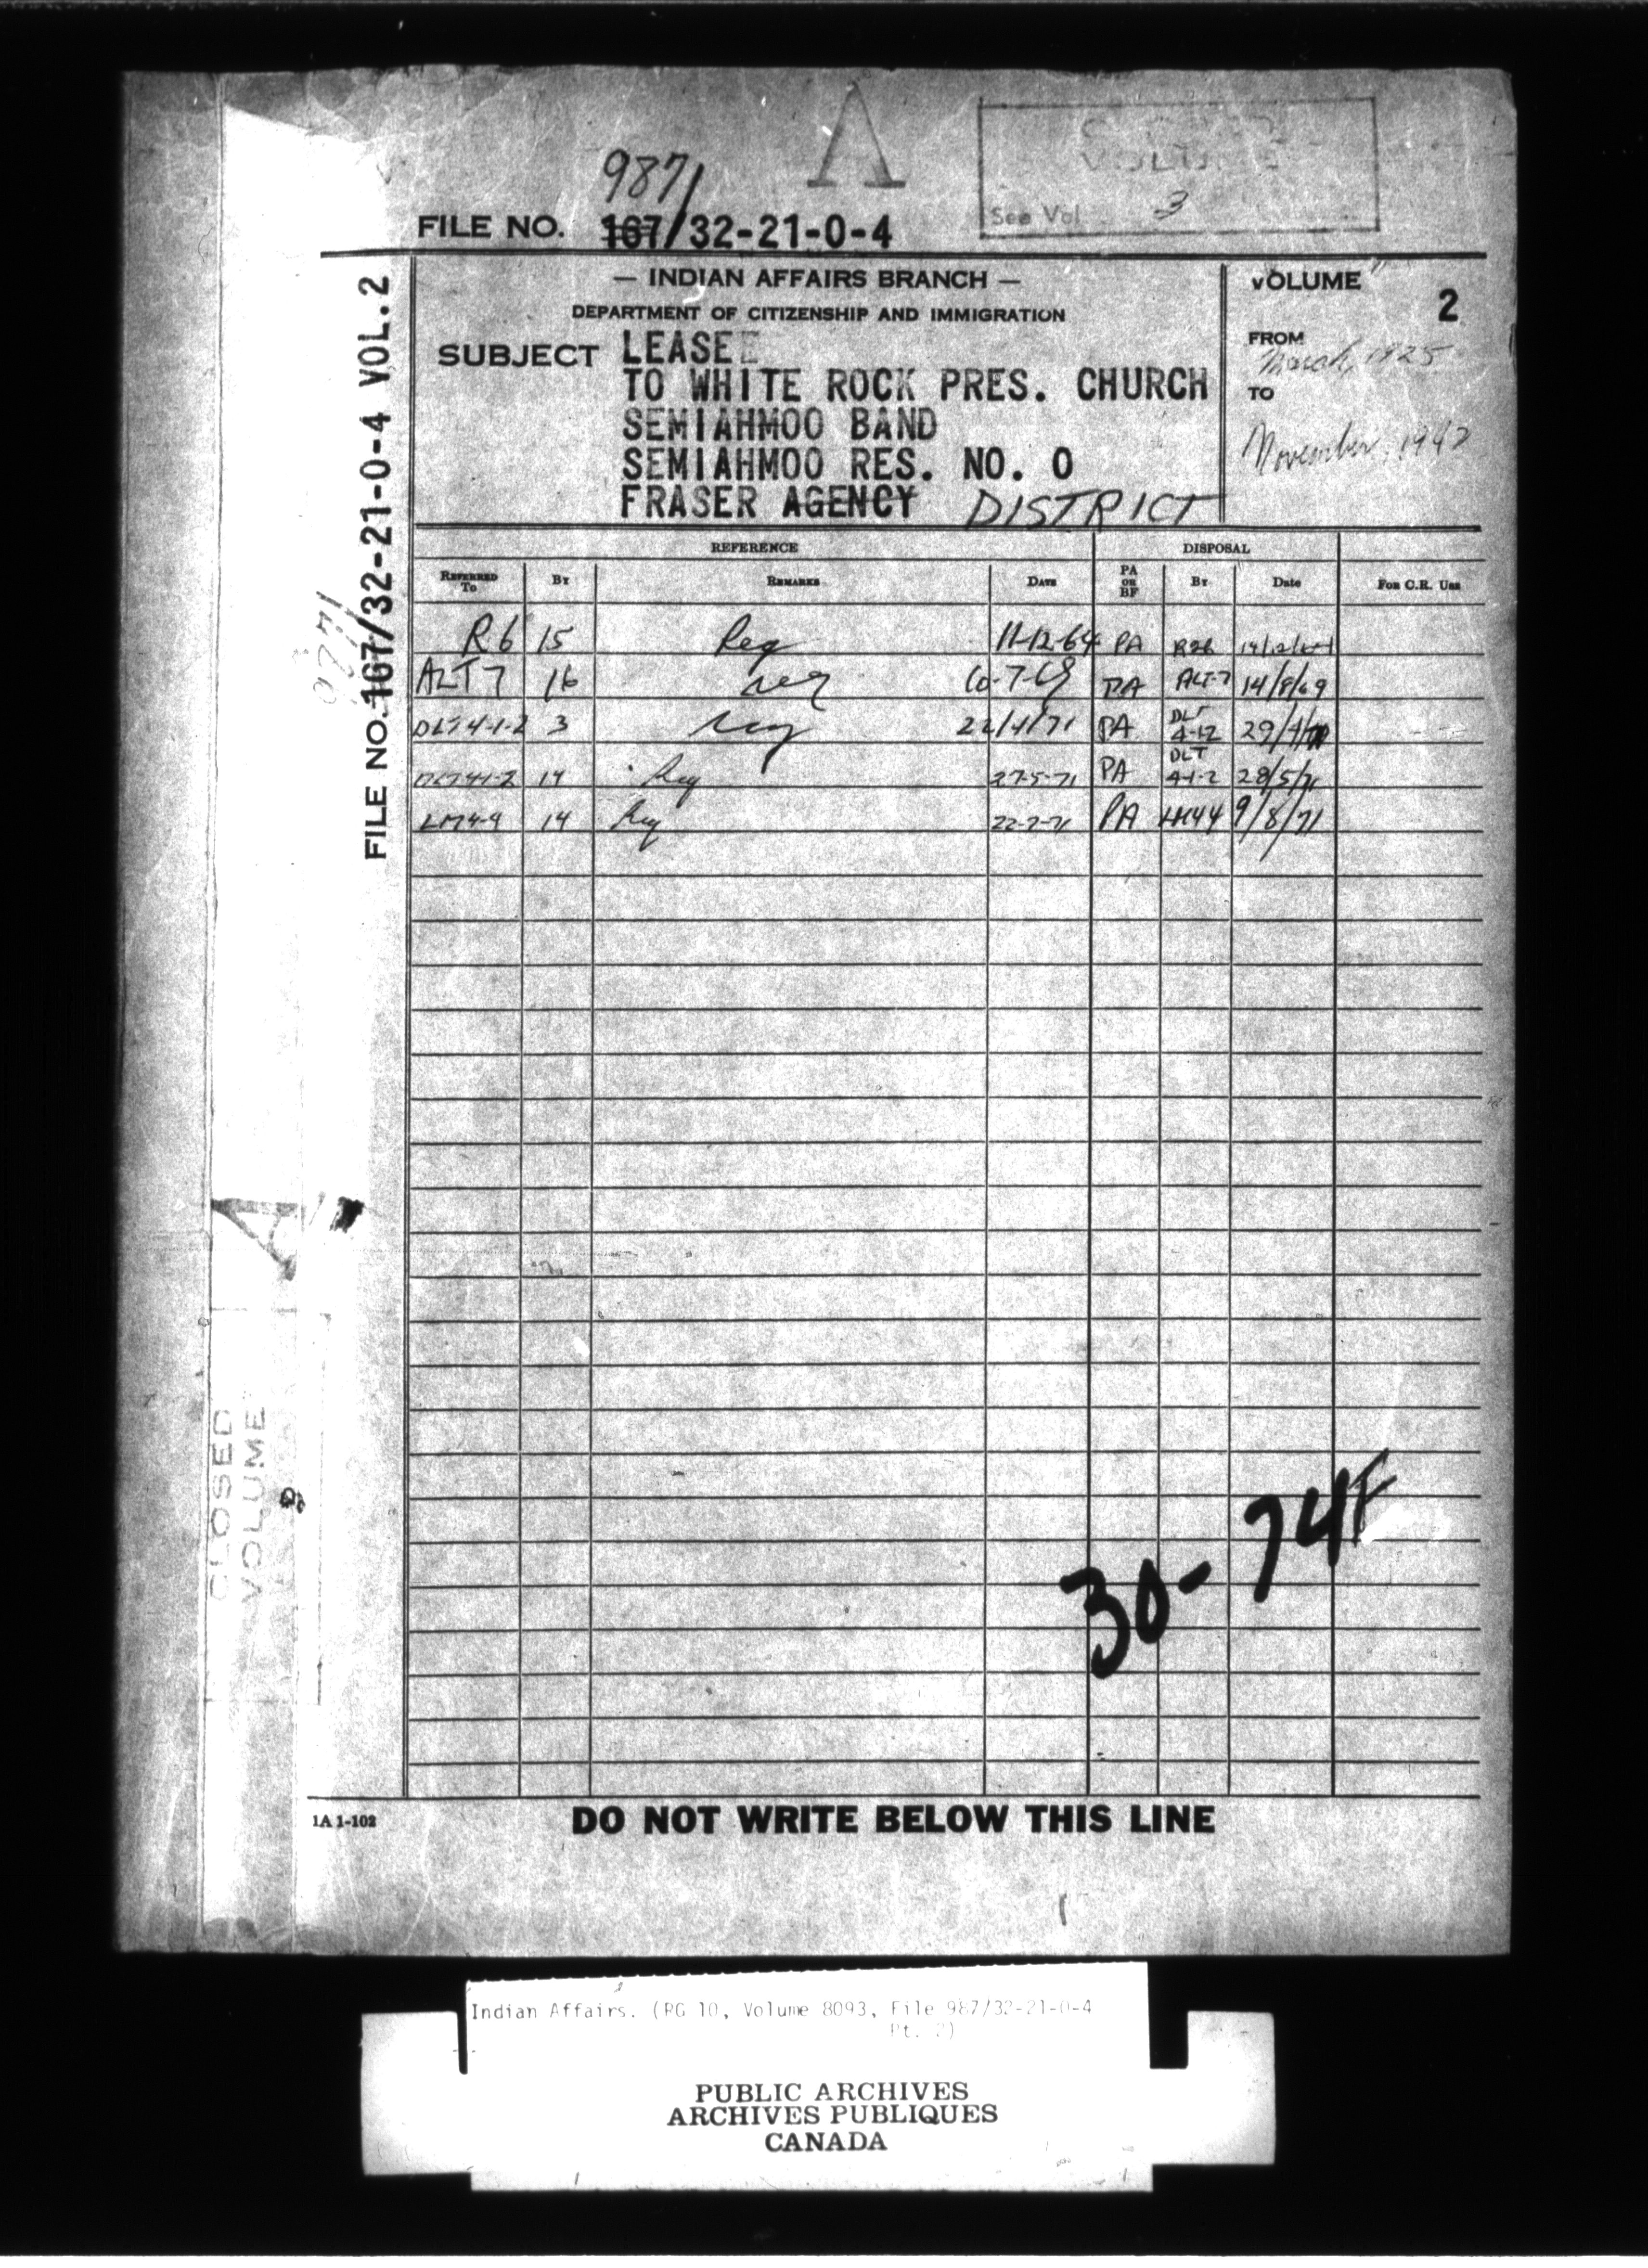 A
CLOSED
VOLUME
See Vol 3
987/
FILE NO. 167/32-21-0-4
— INDIAN AFFAIRS BRANCH —
DEPARTMENT OF CITIZENSHIP AND IMMIGRATION
SUBJECT LEASE
TO WHITE ROCK PRES. CHURCH
SEMIAHMOO BAND
SEMIAHMOO RES. NO. 0
FRASER AGENCY DISTRICT
VOLUME 2
FROM
March, 1925
TO
November, 1942
FILE NO. 167/32-21-0-4 VOL. 2
987/
REFERENCE DISPOSAL
REFERRED TO BY REMARKS DATE PA OR BF BY DATE FOR C.R. USE
R6 15 Req 11-12-64 PA R26
ALT7 16 req 10-7-69 PA ALT-7 14/8/69
DLT4-1-2 3 req 22/4/71 PA DLT 4-12 29/4/71
DLT41-2 14 Req 27-5-71 PA DLT 4-1-2 28/5/71
LM4-4 14 Req 22-7-71 PA LM44 9/8/71
A
CLOSED
VOLUME
30-74F
1A 1-102
DO NOT WRITE BELOW THIS LINE
Indian Affairs. (RG 10, Volume 8093, File 987/32-21-0-4
Pt. 2)
PUBLIC ARCHIVES
ARCHIVES PUBLIQUES
CANADA